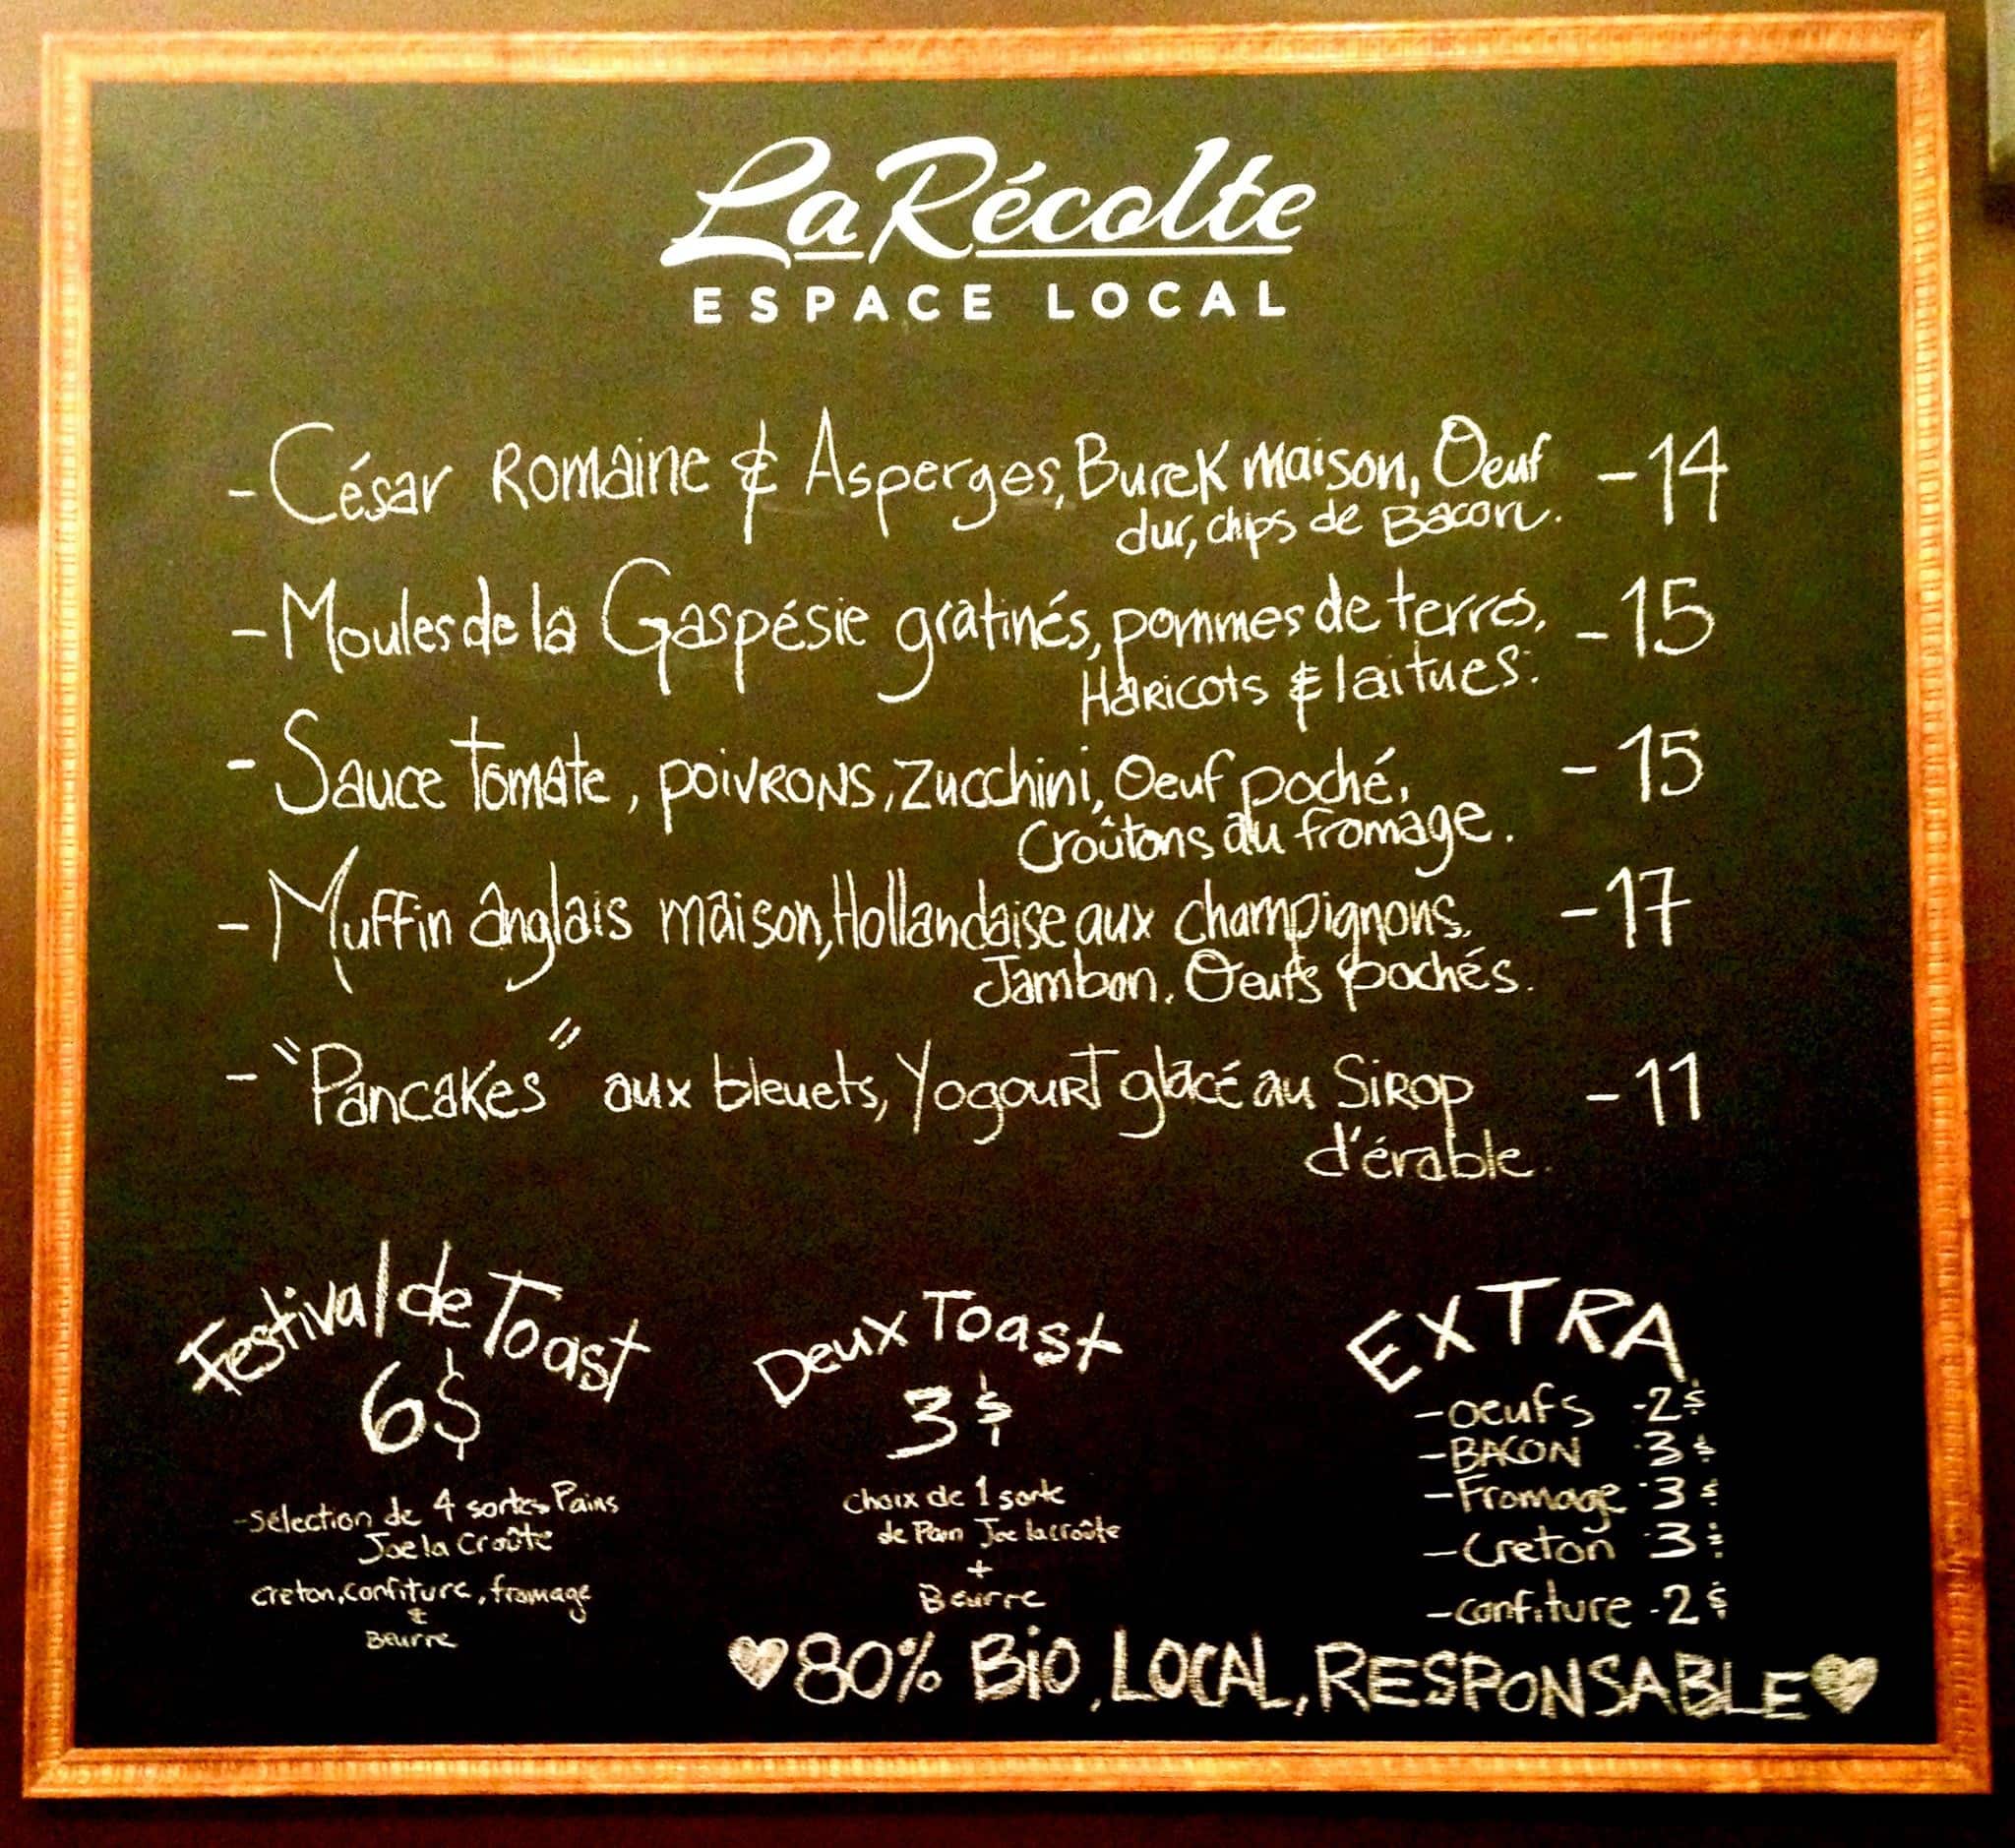 La Récolte
ESPACE LOCAL
- César Romaine & Asperges, Burek maison, Oeuf - 14
dur, chips de Bacon.
- Moules de la Gaspésie gratinés, pommes de terres, - 15
Haricots & laitues.
- Sauce tomate, poivrons, zucchini, Oeuf poché, - 15
Croûtons au fromage.
- Muffin anglais maison, Hollandaise aux champignons, - 17
Jambon, Oeufs pochés.
- "Pancakes" aux bleuets, Yogourt glacé au Sirop - 11
d'érable.
Festival de Toast
6$
- Sélection de 4 sortes Pains
Joe la Croûte
creton, confiture, fromage
&
Beurre
Deux Toast
3$
choix de 1 sorte
de Pain Joe la croûte
+
Beurre
EXTRA
- oeufs - 2$
- BACON - 3$
- Fromage - 3$
- Creton - 3$
- confiture - 2$
♥ 80% Bio, LOCAL, RESPONSABLE ♥